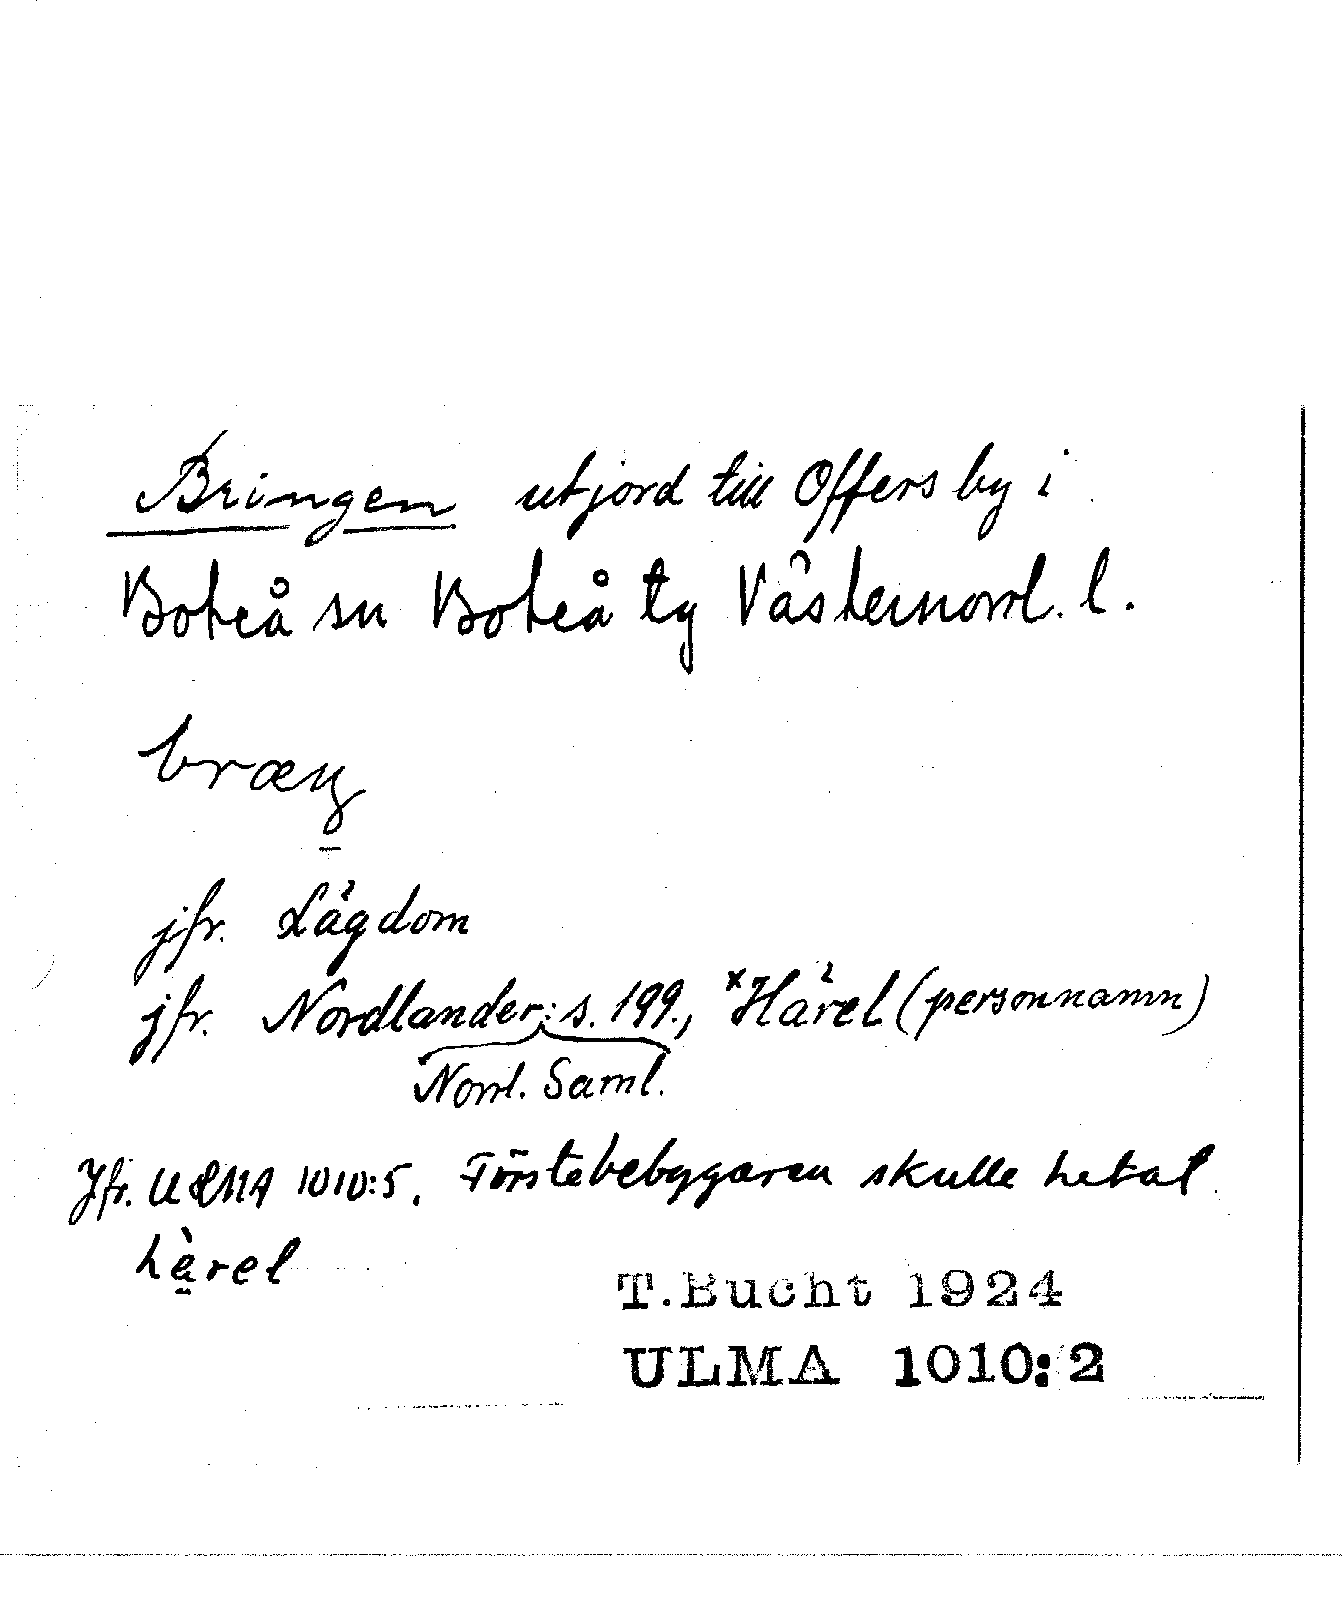 Bringen utjord till Offers by i
Boteå sn Boteå tg Västernorrl. l.
bræŋ
jfr. Lägdom
jfr. Nordlander: s. 199., ×Härel (personnamn)
Norrl. Saml.
Jfr. ULMA 1010:5. Förstebebyggaren skulle hetat
hàrel
T.Bucht 1924
ULMA 1010:2